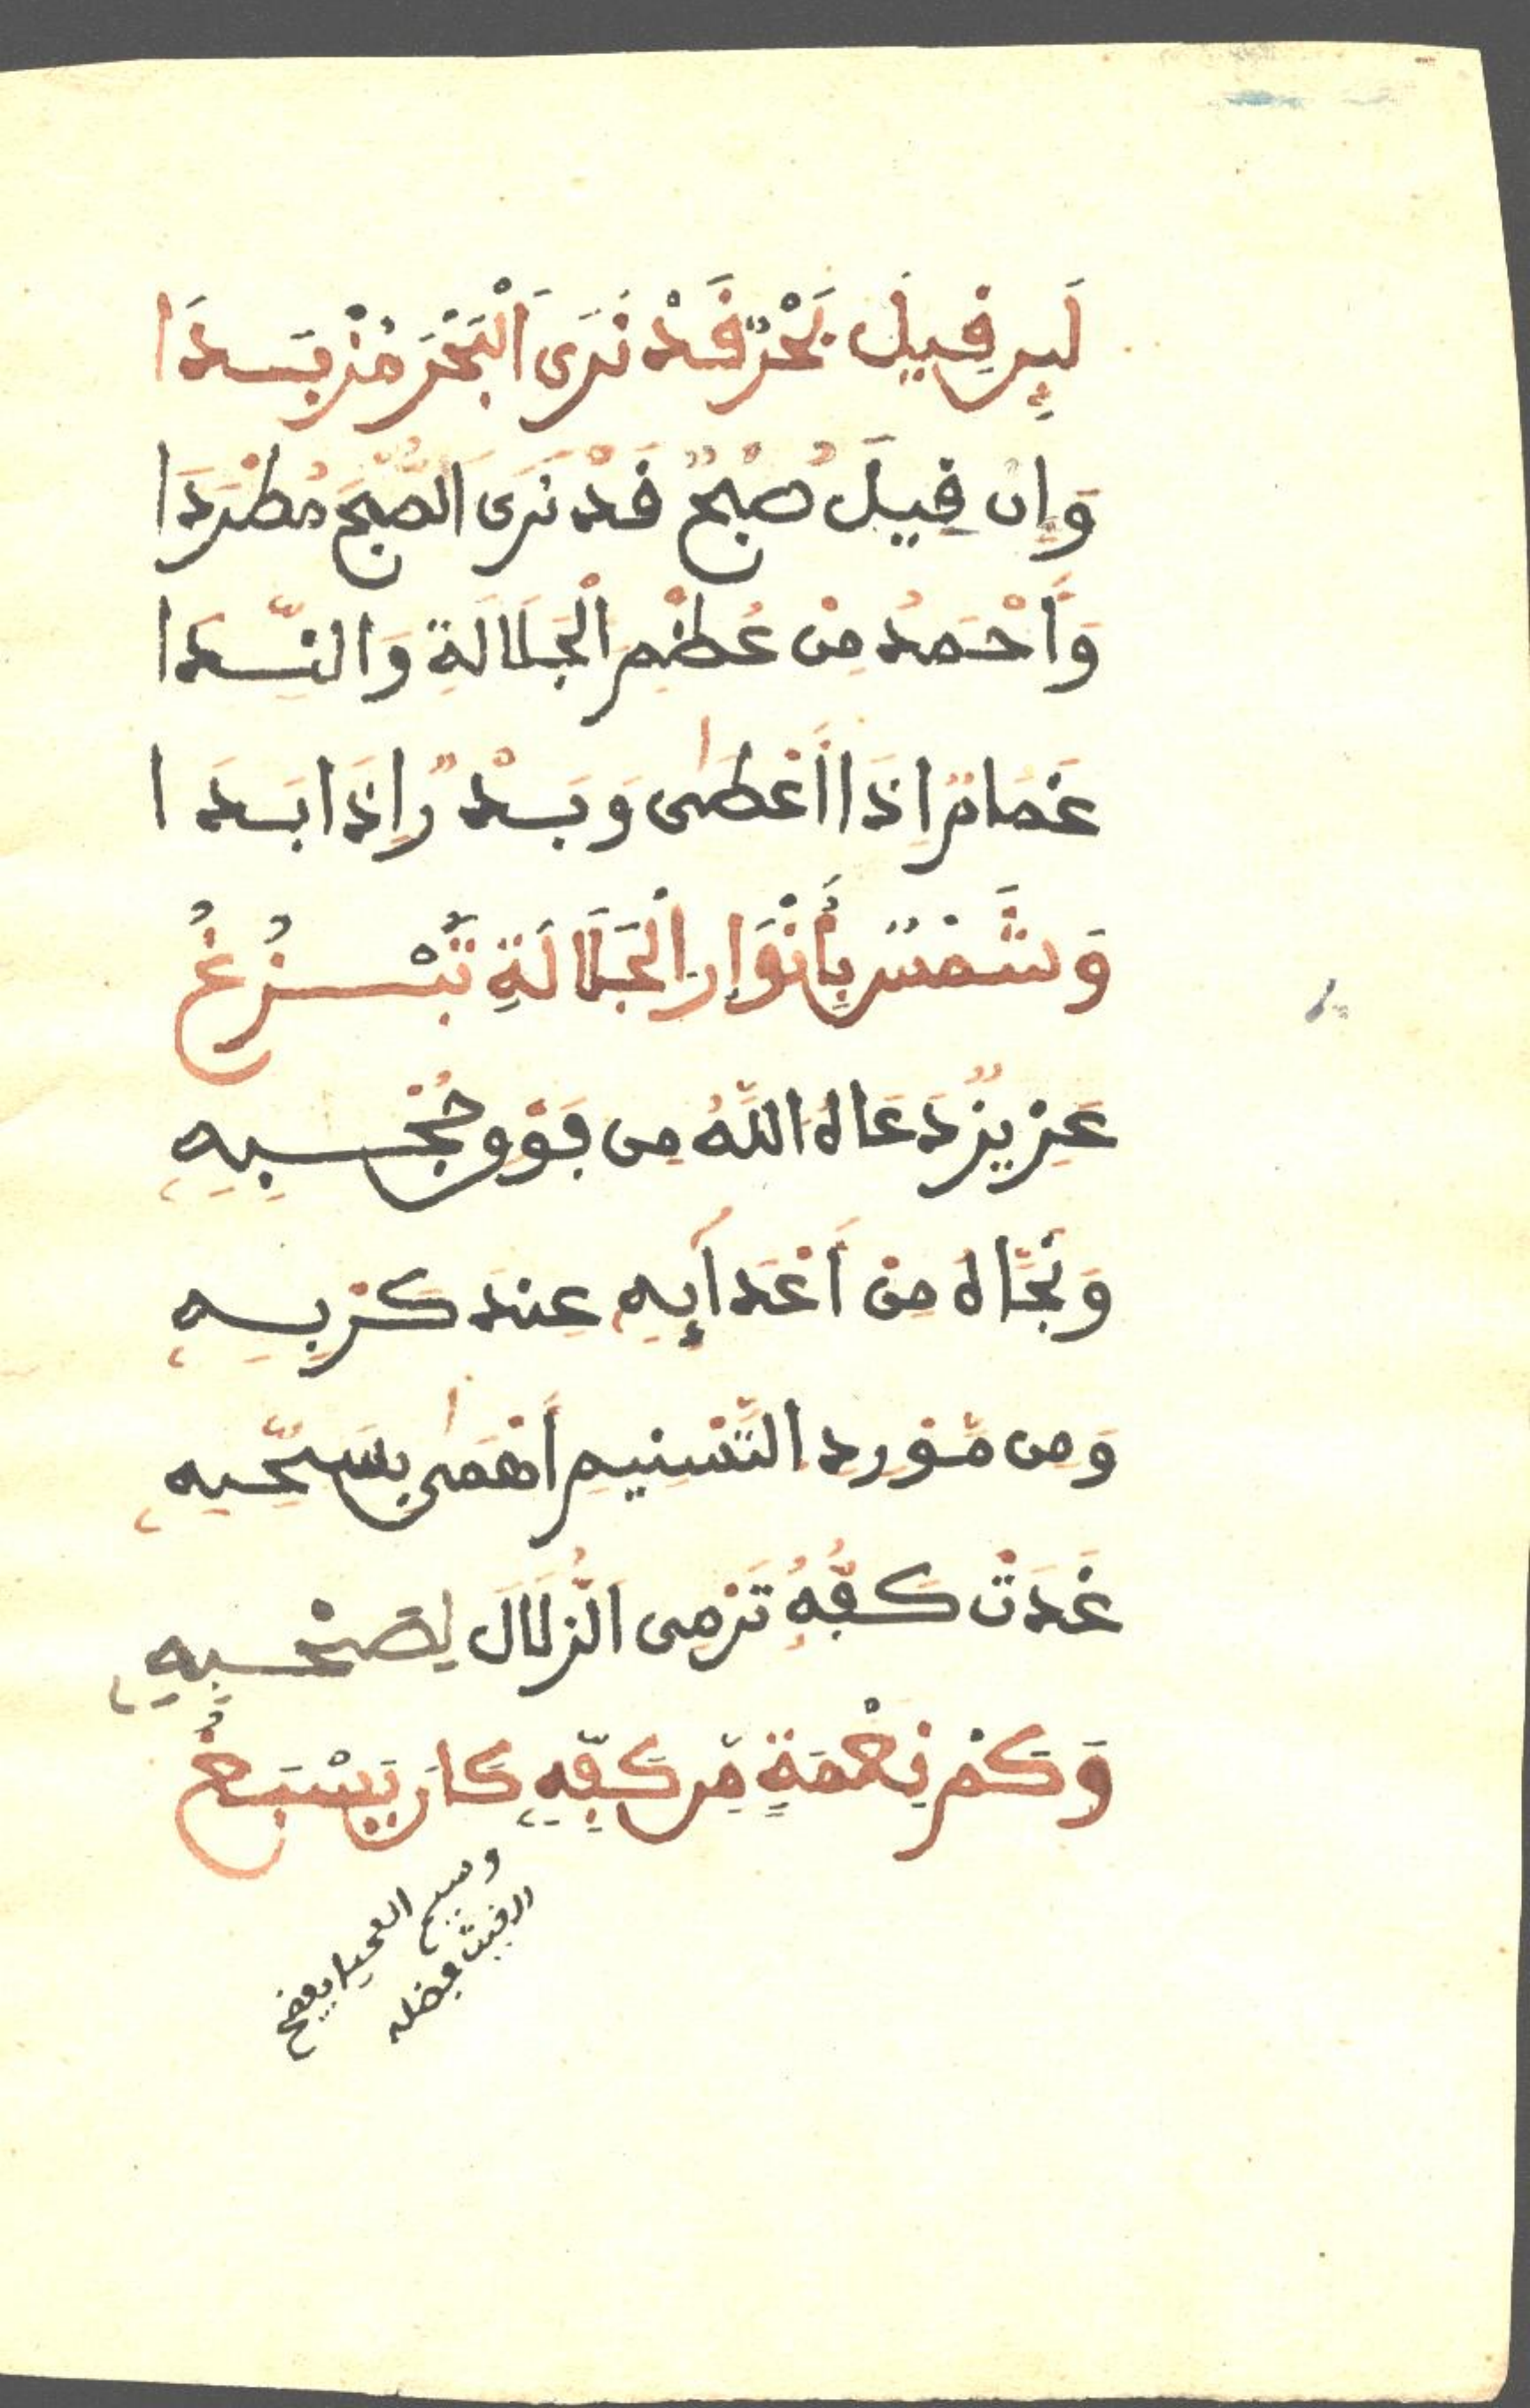 لَئِن قِيلَ بَحْرٌ قَدْ نَرَى الْبَحْرَ مُزْبَدَا
وَإِن قِيلَ صُبْحٌ قَدْ نَرَى الصُّبْحَ مُطْرَدَا
وَأَحْمَدُ مِنْ عُظْمِ الْجَلَالَةِ وَالنَّدَا
غَمَامٌ اِذَا أَعْطَى وَبَدْرٌ إِذَا بَدَا
وَشَمْسٌ بِأَنْوَارِ الْجَلَالَةِ تَبْزُغُ
عَزِيزٌ دَعَاهُ اللَّهُ مِن فَوْقِ حُجْبِهِ
وَنَجَّاهُ مِنْ أَعْدَآئِهِ عِندَ كَرْبِهِ
وَمِن مَّوْرِدِ التَّسْنِيمِ أَهْمَى بِسَحِّهِ
غَدَتْ كَفُّهُ تَرْمِى الزُّلَالَ لِصَحْبِهِ
وَكَمْ نِعْمَةٍ مِّن كَفِّهِ كَانَ يَسْبَغُ
وسيم المحيا